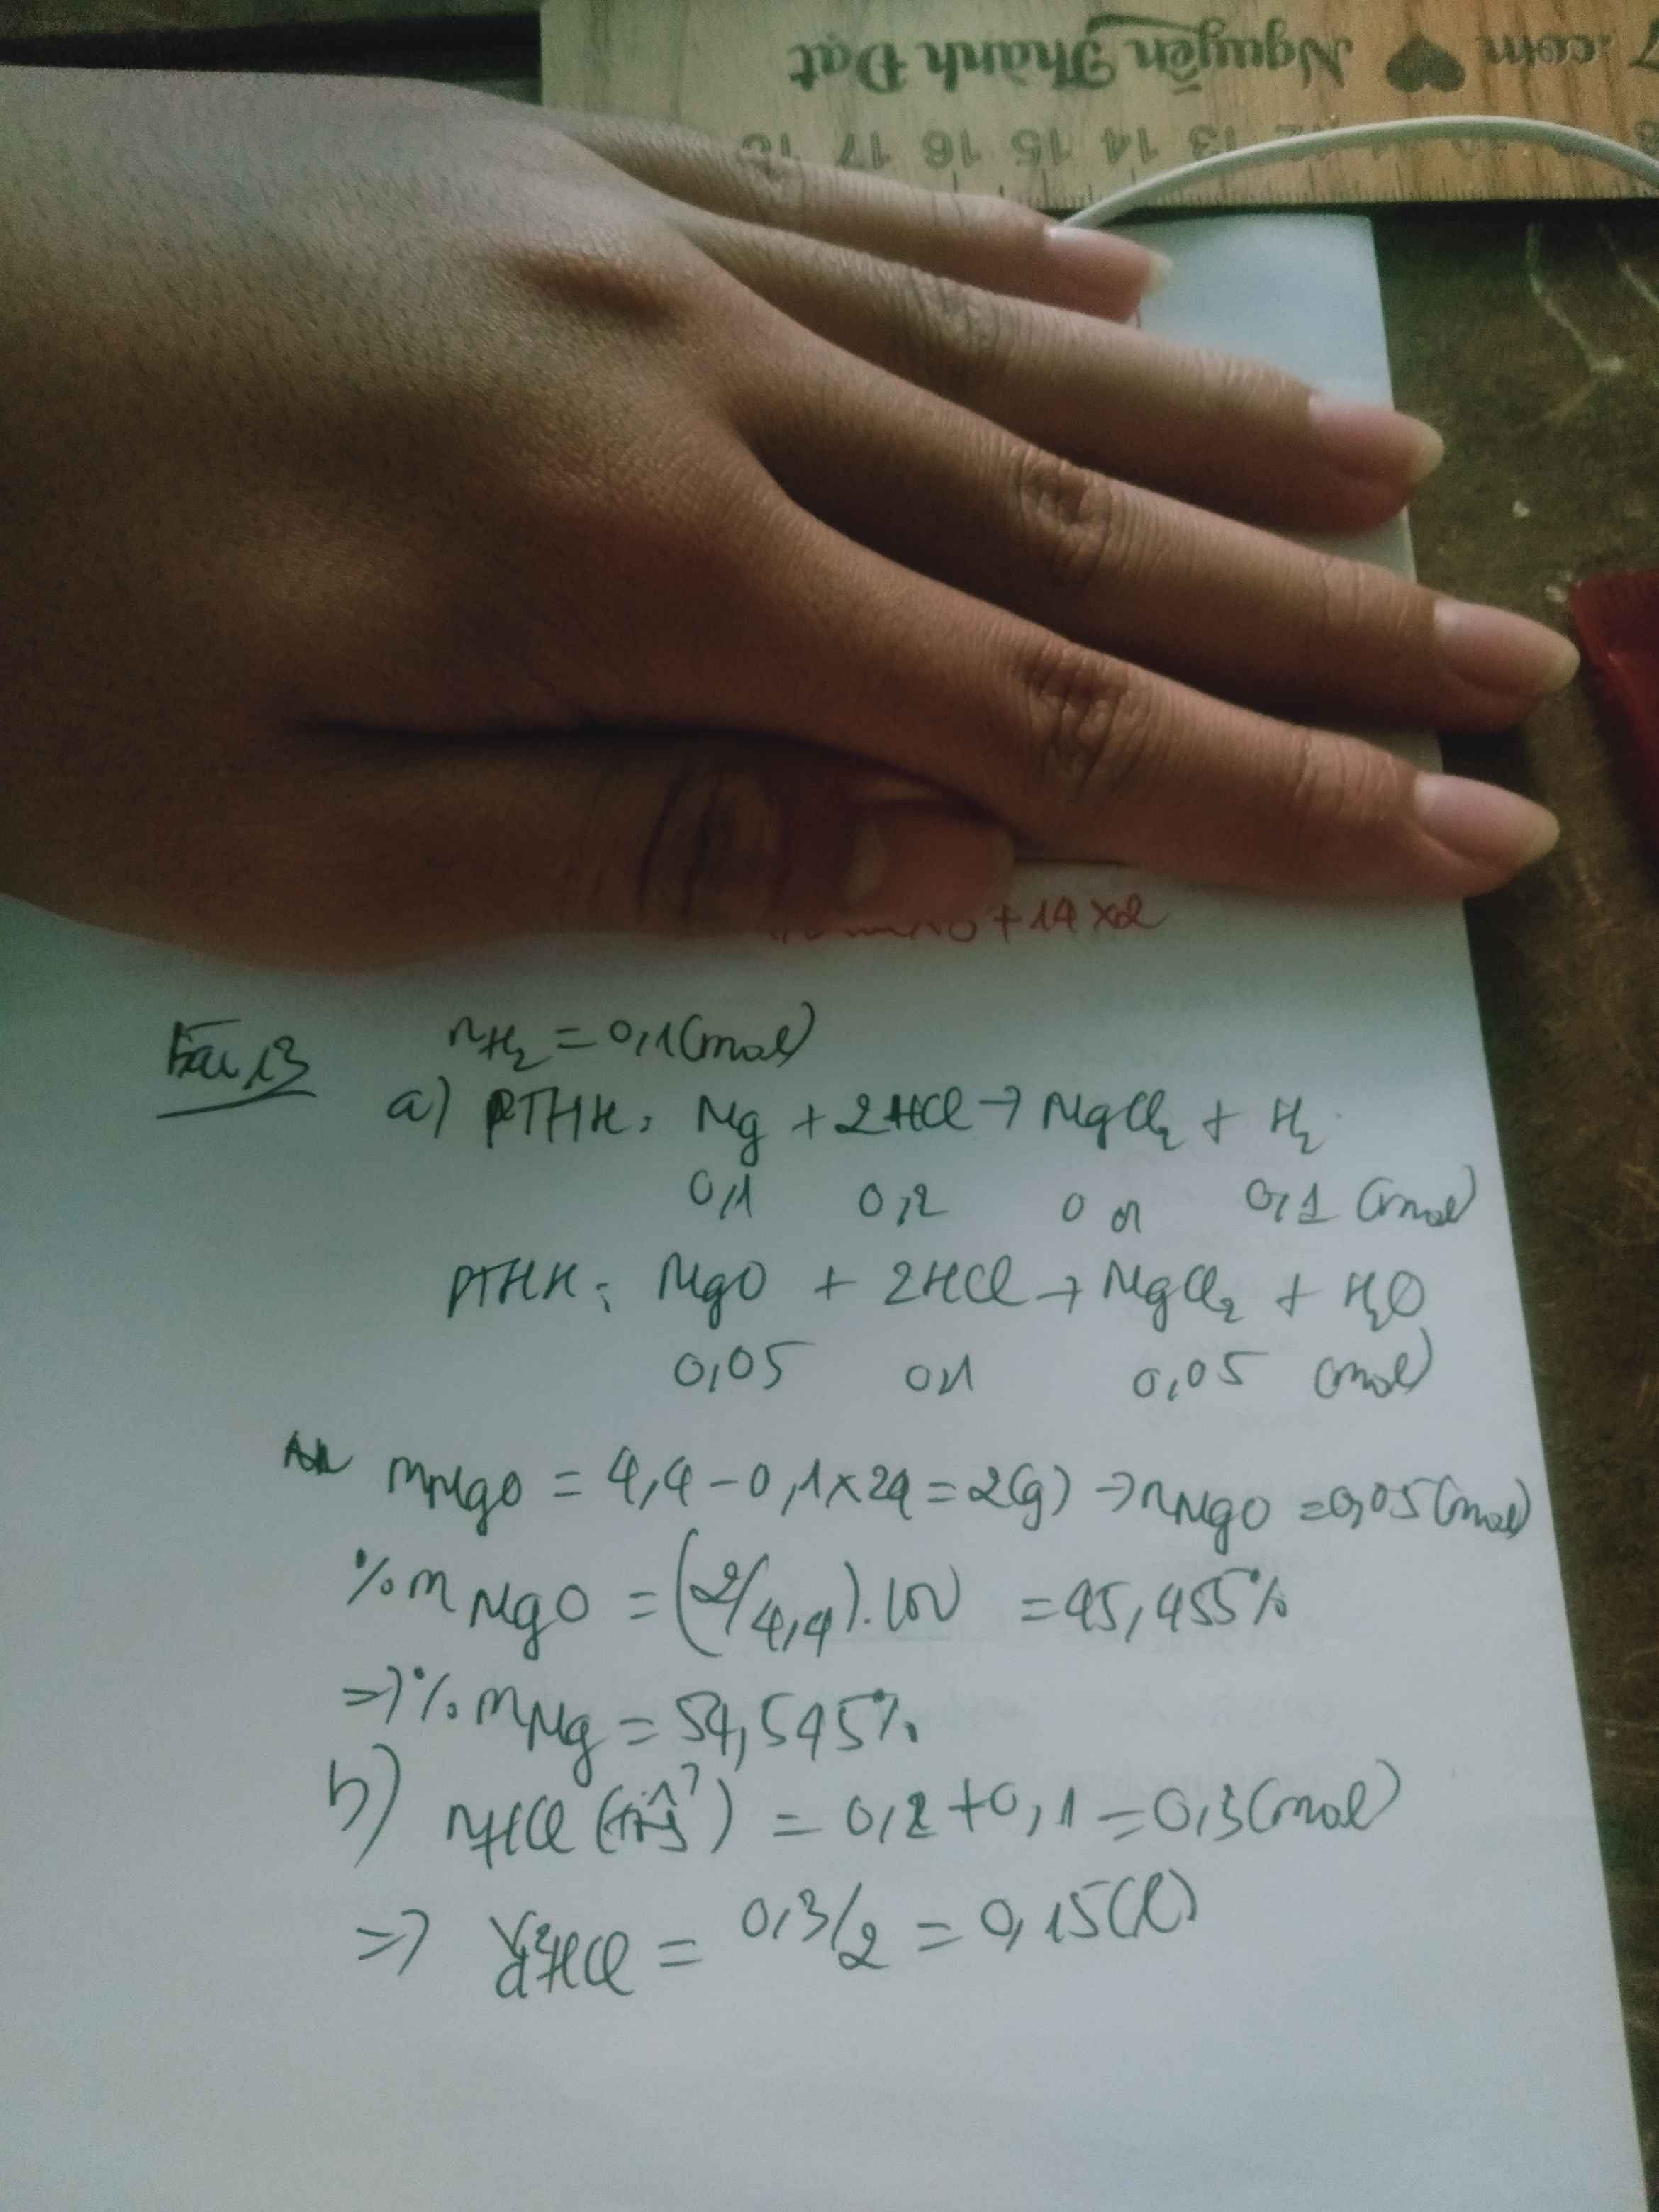 7.com ♥ Nguyễn Thành Đạt
13 14 15 16 17 18
+ 14 x 2
Bài 13
nH₂ = 0,1(mol)
a) PTHH: Mg + 2HCl → MgCl₂ + H₂
0,1 0,2 0,1 0,1 (mol)
PTHH: MgO + 2HCl → MgCl₂ + H₂O
0,05 0,1 0,05 (mol)
mMgO = 4,4 - 0,1 x 24 = 2(g) → nMgO = 0,05(mol)
%mMgO = (2/4,4).100 = 45,455%
=> %mMg = 54,545%
b) nHCl = 0,2 + 0,1 = 0,3(mol)
=> HCl = 0,3/2 = 0,15(l)